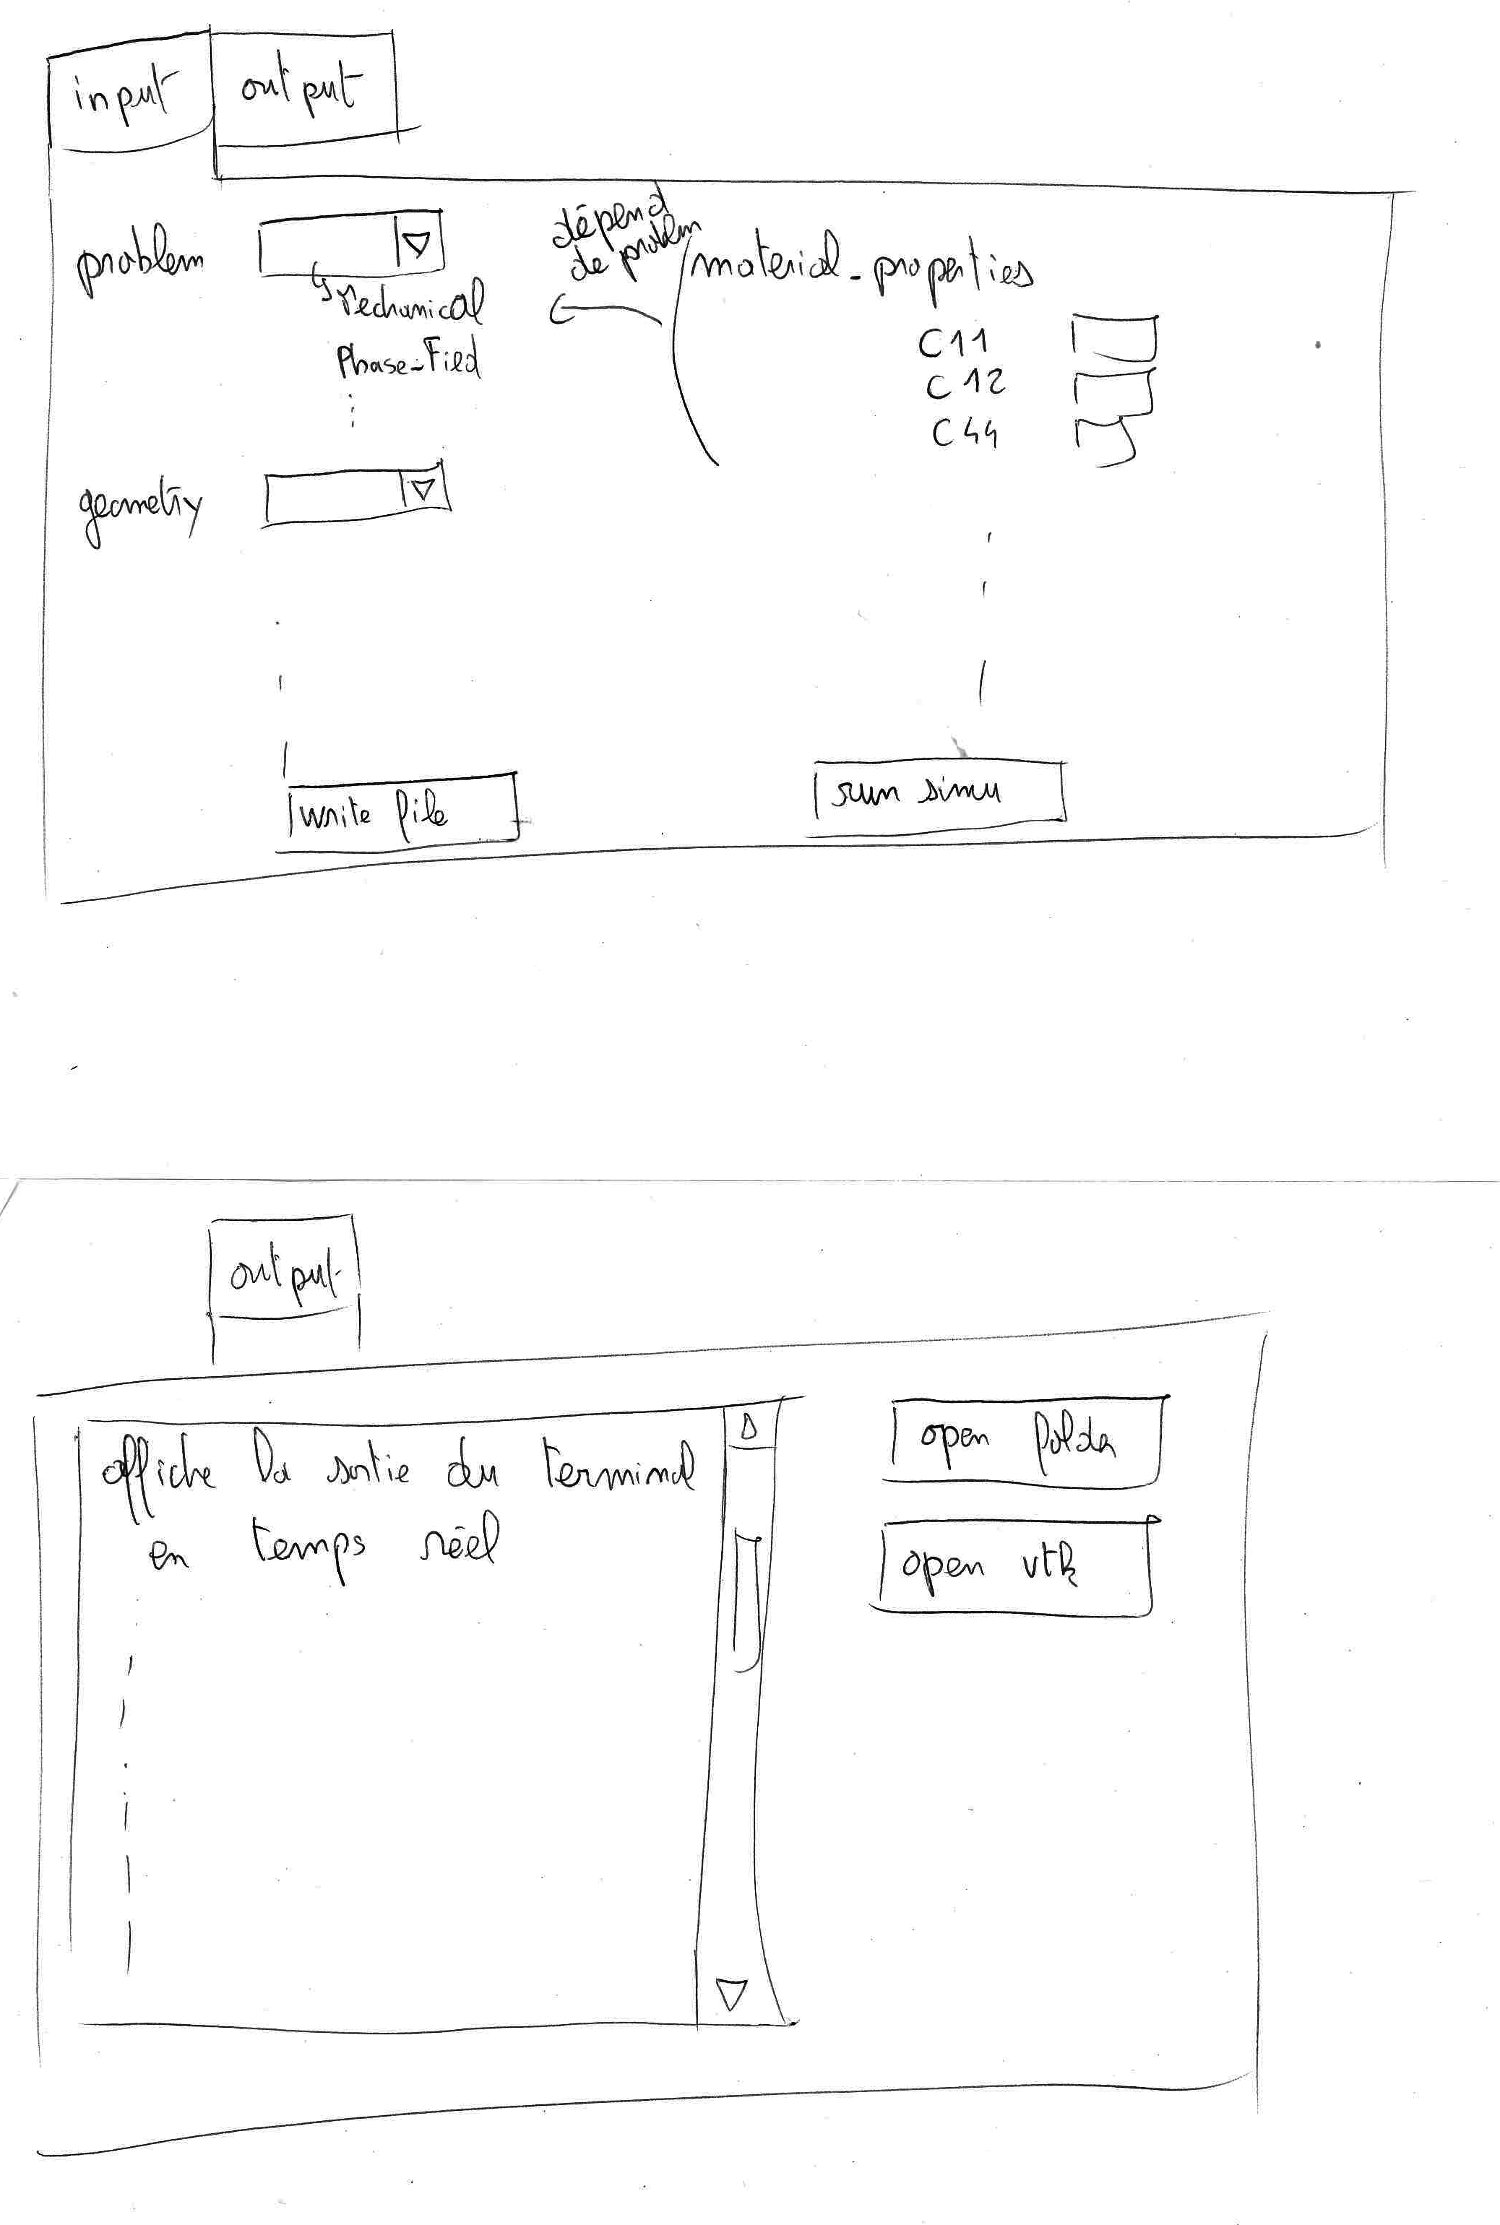 input
output
problem
Mechanical
Phase-Field
dépend
de problem
material-properties
C11
C12
C44
geometry
write file
run simu
output
affiche la sortie du terminal
en temps réel
open folder
open vtk